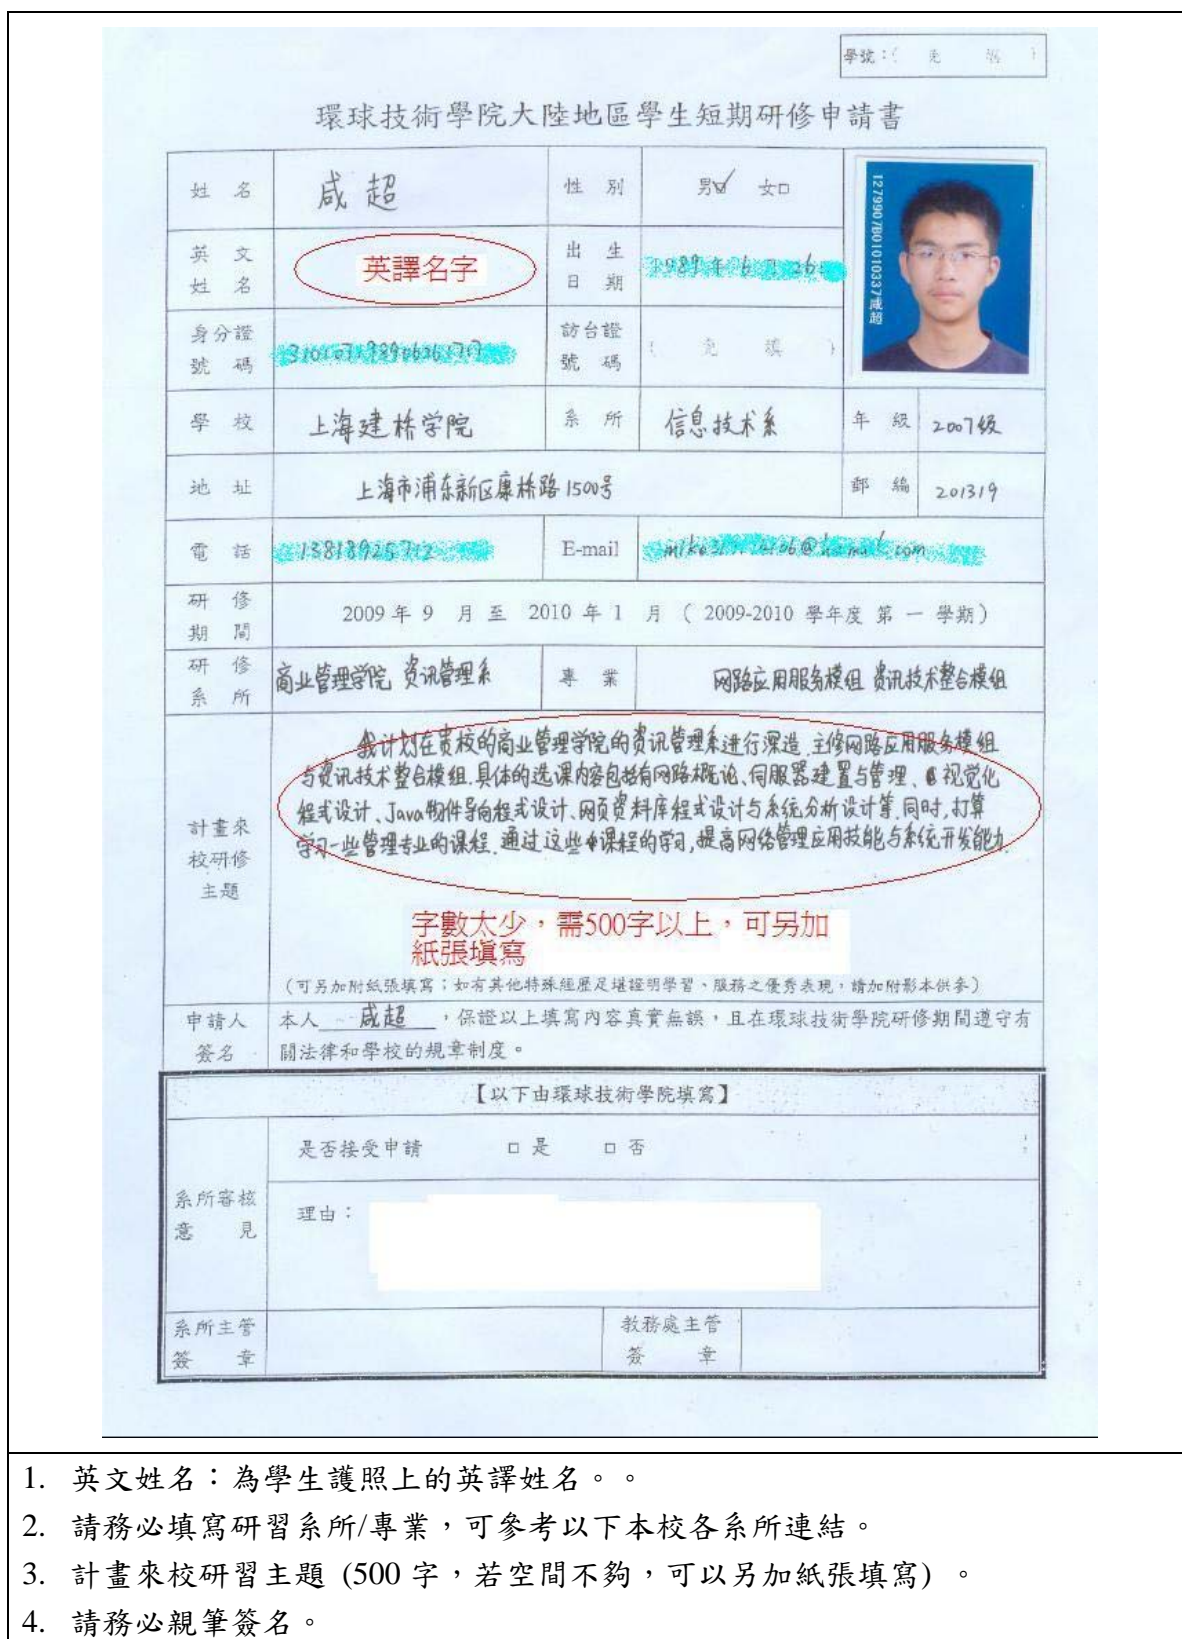 學號:( 免 填 )
環球技術學院大陸地區學生短期研修申請書
姓 名 咸超 性 別 男☑ 女□
英文姓名 英譯名字 出生日期
身分證號碼 訪台證號碼 ( 免 填 )
學 校 上海建桥学院 系 所 信息技术系 年 級 2007级
地 址 上海市浦东新区康桥路1500号 郵 編 201319
電 話 E-mail
研修期間 2009 年 9 月 至 2010 年 1 月 ( 2009-2010 學年度 第 一 學期)
研修系所 商业管理学院 资讯管理系 專 業 网路应用服务模组 资讯技术整合模组
我计划在贵校的商业管理学院的资讯管理系进行深造.主修网路应用服务模组
与资讯技术整合模组.具体的选课内容包括有网路概论、伺服器建置与管理、视觉化
程式设计、Java物件导向程式设计、网页资料库程式设计与系统分析设计等.同时,打算
学习一些管理专业的课程.通过这些课程的学习,提高网络管理应用技能与系统开发能力.
計畫來
校研修
主題
字數太少，需500字以上，可另加
紙張填寫
(可另加附紙張填寫；如有其他特殊經歷足堪證明學習、服務之優秀表現，請加附影本供參)
申請人簽名 本人 咸超 ，保證以上填寫內容真實無誤，且在環球技術學院研修期間遵守有
關法律和學校的規章制度。
【以下由環球技術學院填寫】
是否接受申請 □ 是 □ 否
系所審核意 見
理由：
系所主管簽 章 教務處主管簽 章
1. 英文姓名：為學生護照上的英譯姓名。。
2. 請務必填寫研習系所/專業，可參考以下本校各系所連結。
3. 計畫來校研習主題 (500 字，若空間不夠，可以另加紙張填寫) 。
4. 請務必親筆簽名。